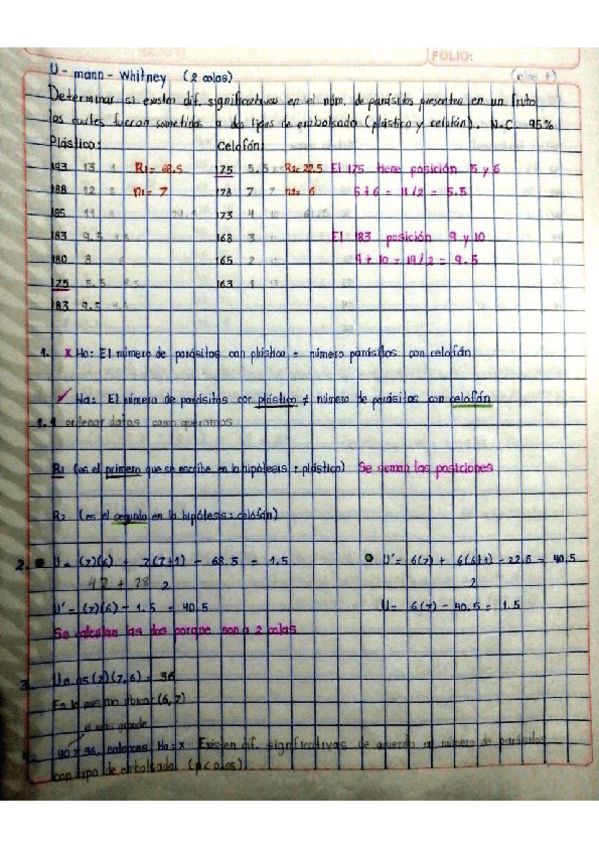 FOLIO:
U - mann - Whitney (2 colas)
Determinar si existen dif. significativas en el núm. de parásitos presentes en un fruto
los cuales fueron sometidos a dos tipos de embolsado (plástico y celofán). N.C. 95%
Plástico: Celofán:
193 13 R1 = 68.5 175 5.5 R2 = 22.5 El 175 tiene posición 5 y 6
188 12 n1 = 7 178 7 n2 = 6 5 + 6 = 11/2 = 5.5
185 11 173 4
183 9.5 168 3 El 183 posición 9 y 10
180 8 165 2 9 + 10 = 19/2 = 9.5
175 5.5 163 1
183 9.5
1. x Ho: El número de parásitos con plástico = número parásitos con celofán
✓ Ha: El número de parásitos con plástico ≠ número de parásitos con celofán
1.1 ordenar datos como queramos
R1 (es el primero que se escribe en la hipótesis: plástico) Se suman las posiciones
R2 (es el segundo en la hipótesis: celofán)
2. U = (7)(6) + 7(7+1) - 68.5 = 1.5 U' = 6(7) + 6(6+1) - 22.5 = 40.5
42 + 28 2 2
U' = (7)(6) - 1.5 = 40.5 U = 6(7) - 40.5 = 1.5
Se calculan las dos porque son a 2 colas
3. U0.05(2)(7,6) = 36
Es lo mismo (6,7)
el más grande
40 > 36, entonces Ho = x Existen dif. significativas de acuerdo al número de parásitos
con tipo de embolsado.